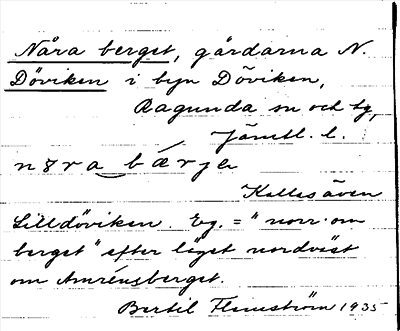 Nåra berget, gårdarna N.
Döviken i byn Döviken,
Ragunda sn och tg,
Jämtl. l.
Kallas även
Lilldöviken. Eg. = "norr om
berget" efter läget nordväst
om Amrénsberget.
Bertil Flemström 1935